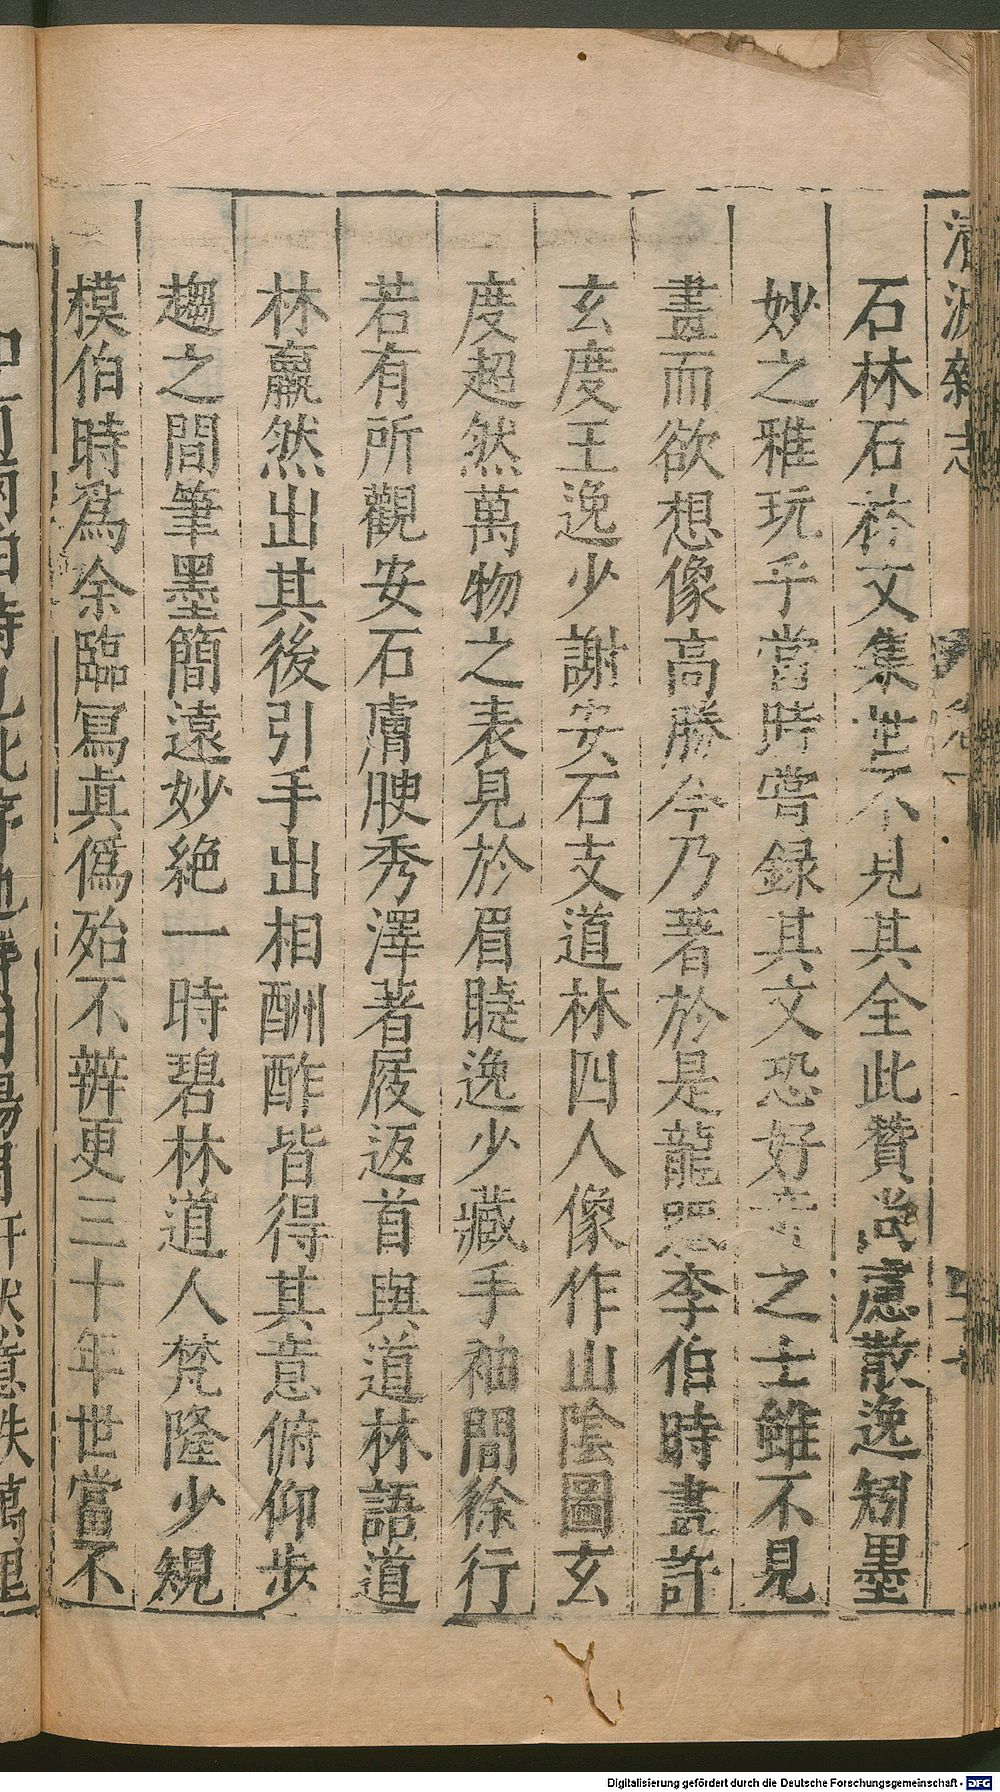 清波雜志
石林石林文集世不見其全此贊尚慮散逸矧墨
妙之雅玩乎當時嘗録其文恐好奇之士雖不見
畫而欲想像高勝今乃著於是龍眠李伯時畫許
玄度王逸少謝安石支道林四人像作山陰圖玄
度超然萬物之表見於眉睫逸少藏手袖間徐行
若有所觀安石膚腴秀澤著屐返首與道林語道
林羸然出其後引手出相酬酢皆得其意俯仰步
趨之間筆墨簡遠妙絶一時碧林道人梵隆少規
模伯時爲余臨冩真僞殆不辨更三十年世當不
Digitalisierung gefördert durch die Deutsche Forschungsgemeinschaft - DFG